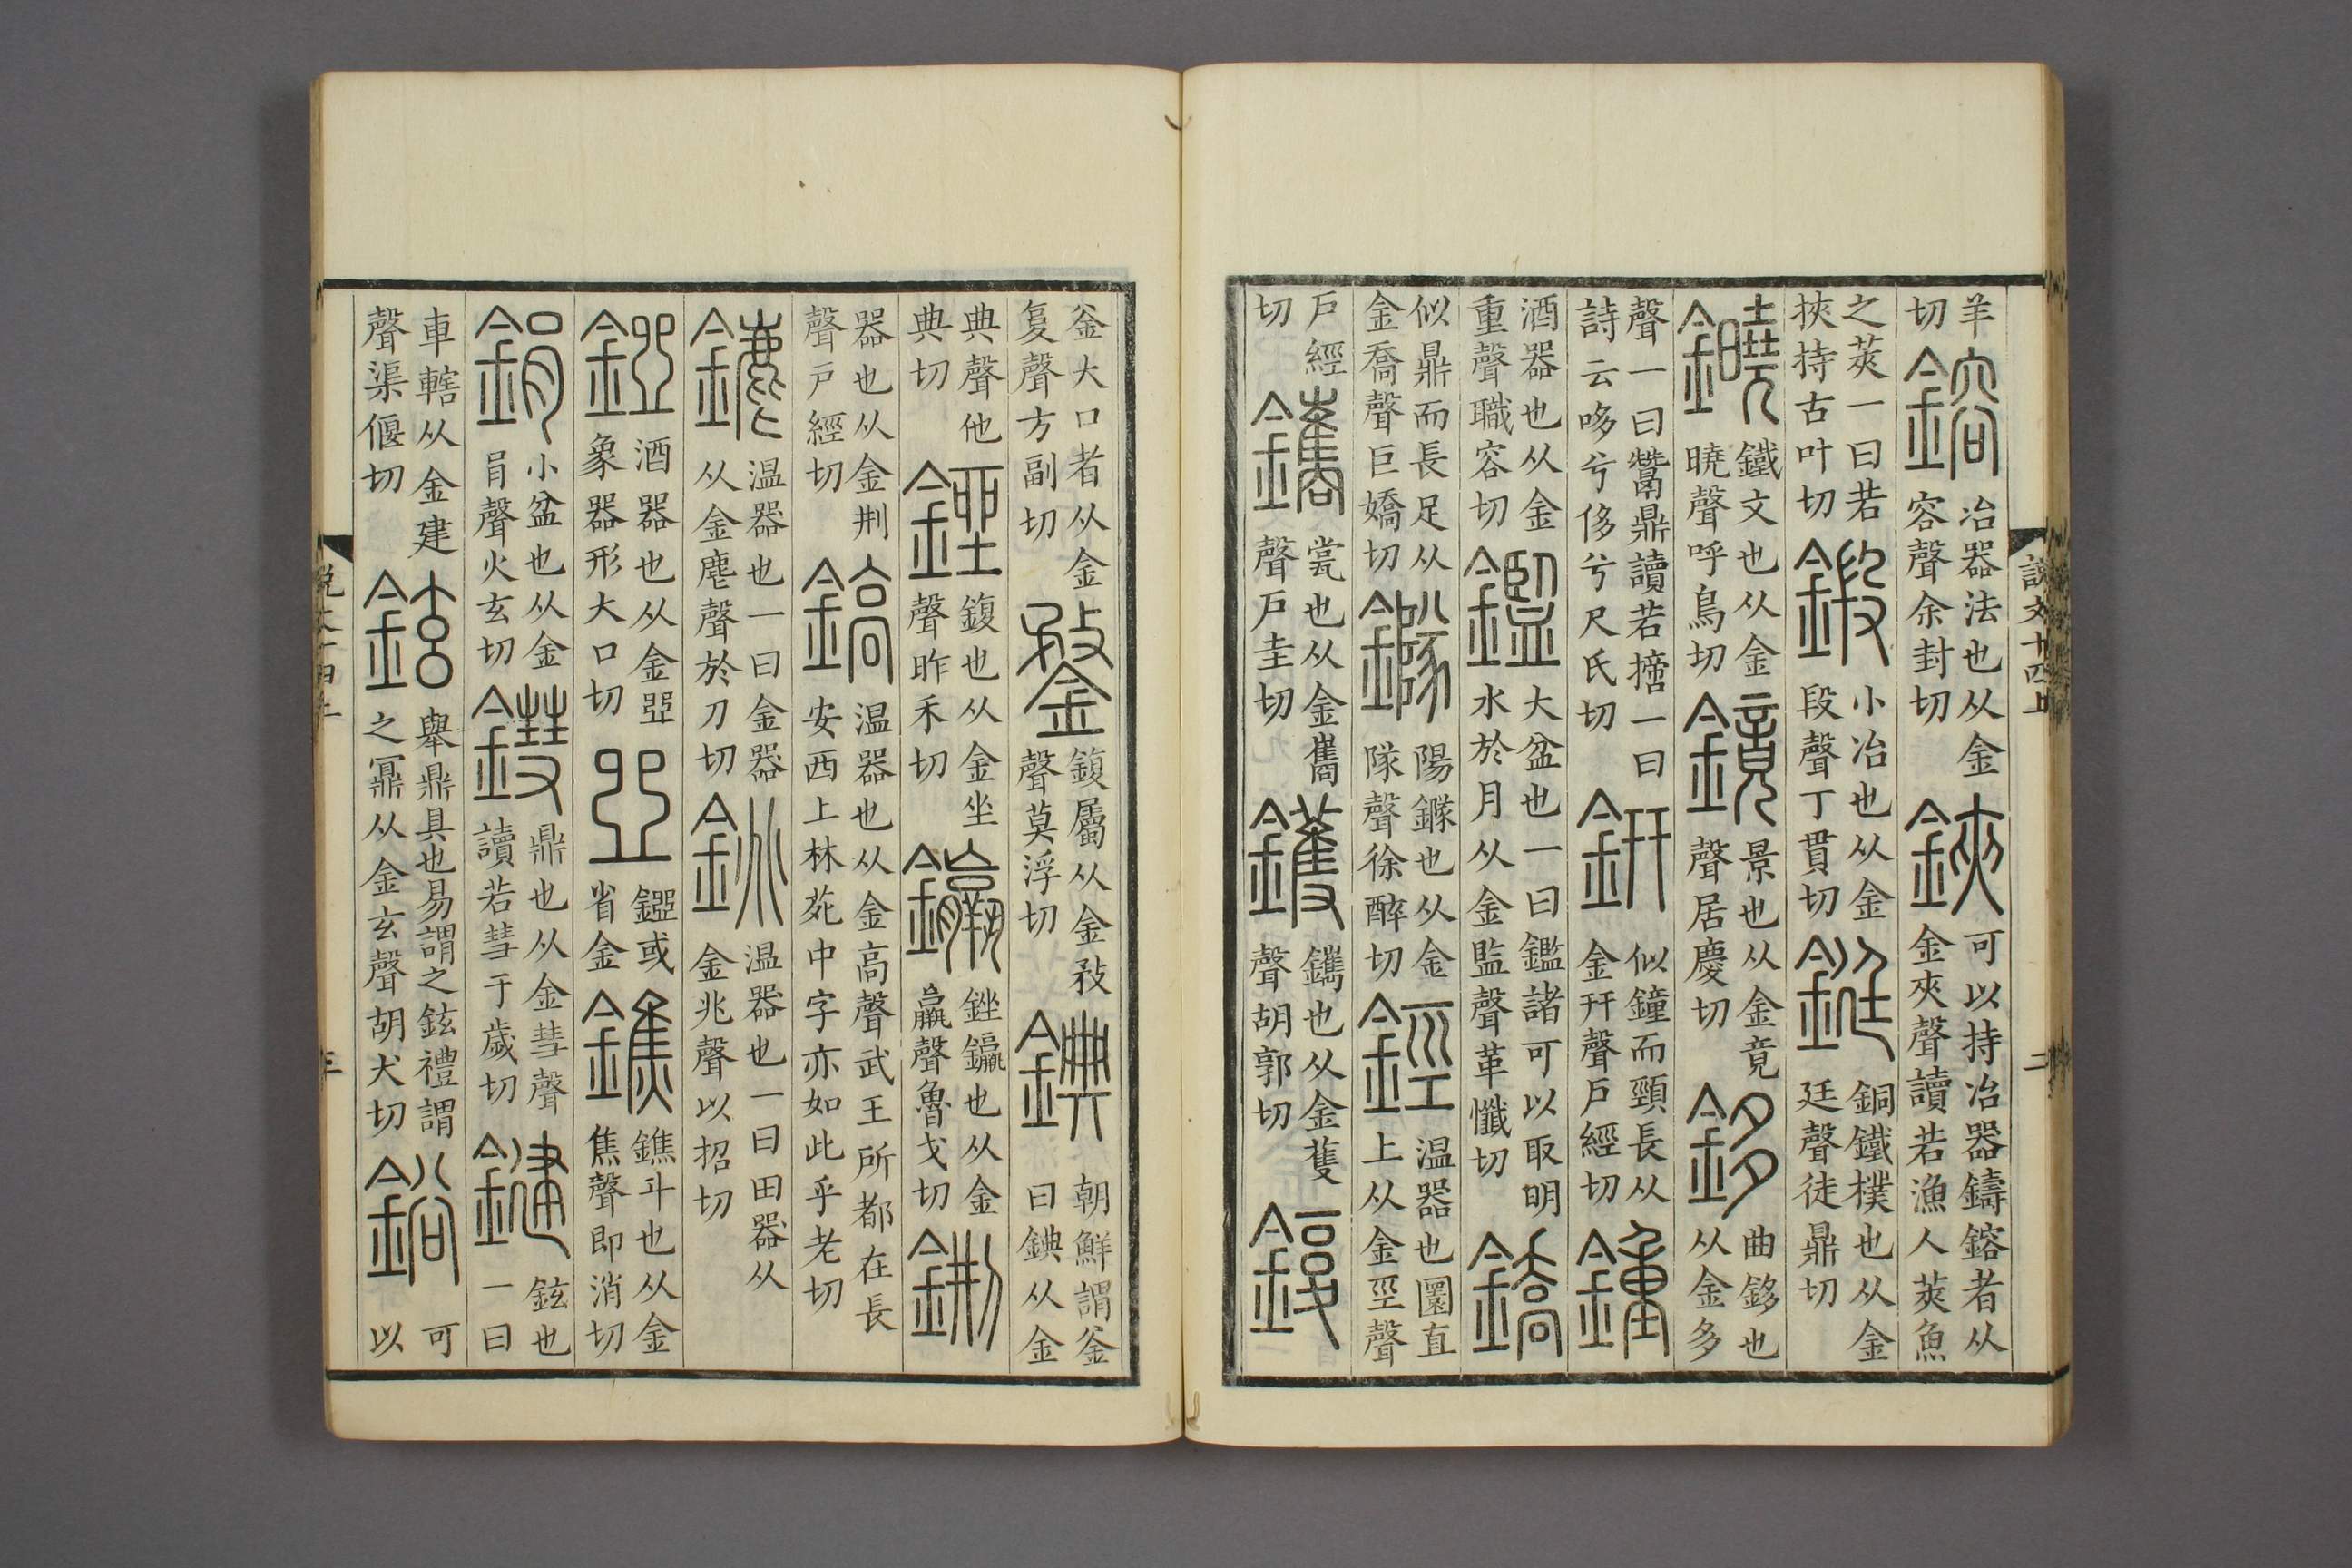 羊切鎔冶器法也从金容聲余封切鋏可以持冶器鑄鎔者从金夾聲讀若漁人莢魚
之莢一曰若挾持古叶切鍛小冶也从金段聲丁貫切鋌銅鐵樸也从金廷聲徒鼎切
鐵文也从金曉聲呼鳥切鏡景也从金竟聲居慶切鉹曲鉹也从金多
聲一曰鬵鼎讀若擿一曰詩云哆兮侈兮尺氏切鈃似鐘而頸長从金幵聲戶經切鍾
酒器也从金重聲職容切鑑大盆也一曰鑑諸可以取明水於月从金監聲革懺切鐈
似鼎而長足从金喬聲巨嬌切鐆陽鐆也从金隊聲徐醉切鋞温器也圜直上从金巠聲
戶經切鑴㽁也从金巂聲戶圭切鑊鑴也从金蒦聲胡郭切鍑
說文十四上
二
釜大口者从金复聲方副切鍪鍑屬从金敄聲莫浮切錪朝鮮謂釜曰錪从金
典聲他典切銼鍑也从金坐聲昨禾切鑹銼鑹也从金羸聲魯戈切鉶
器也从金荆聲戶經切鎬温器也从金高聲武王所都在長安西上林苑中字亦如此乎老切
䥝温器也一曰金器从金麀聲於刀切銚温器也一曰田器从金兆聲以招切
酒器也从金象器形大口切或省金鐎鐎斗也从金焦聲即消切
鋗小盆也从金肙聲火玄切鏏鼎也从金彗聲讀若彗于歲切鍵鉉也一曰
車轄从金建聲渠偃切鉉舉鼎具也易謂之鉉禮謂之鼏从金玄聲胡犬切鋊可以
說文十四上
三